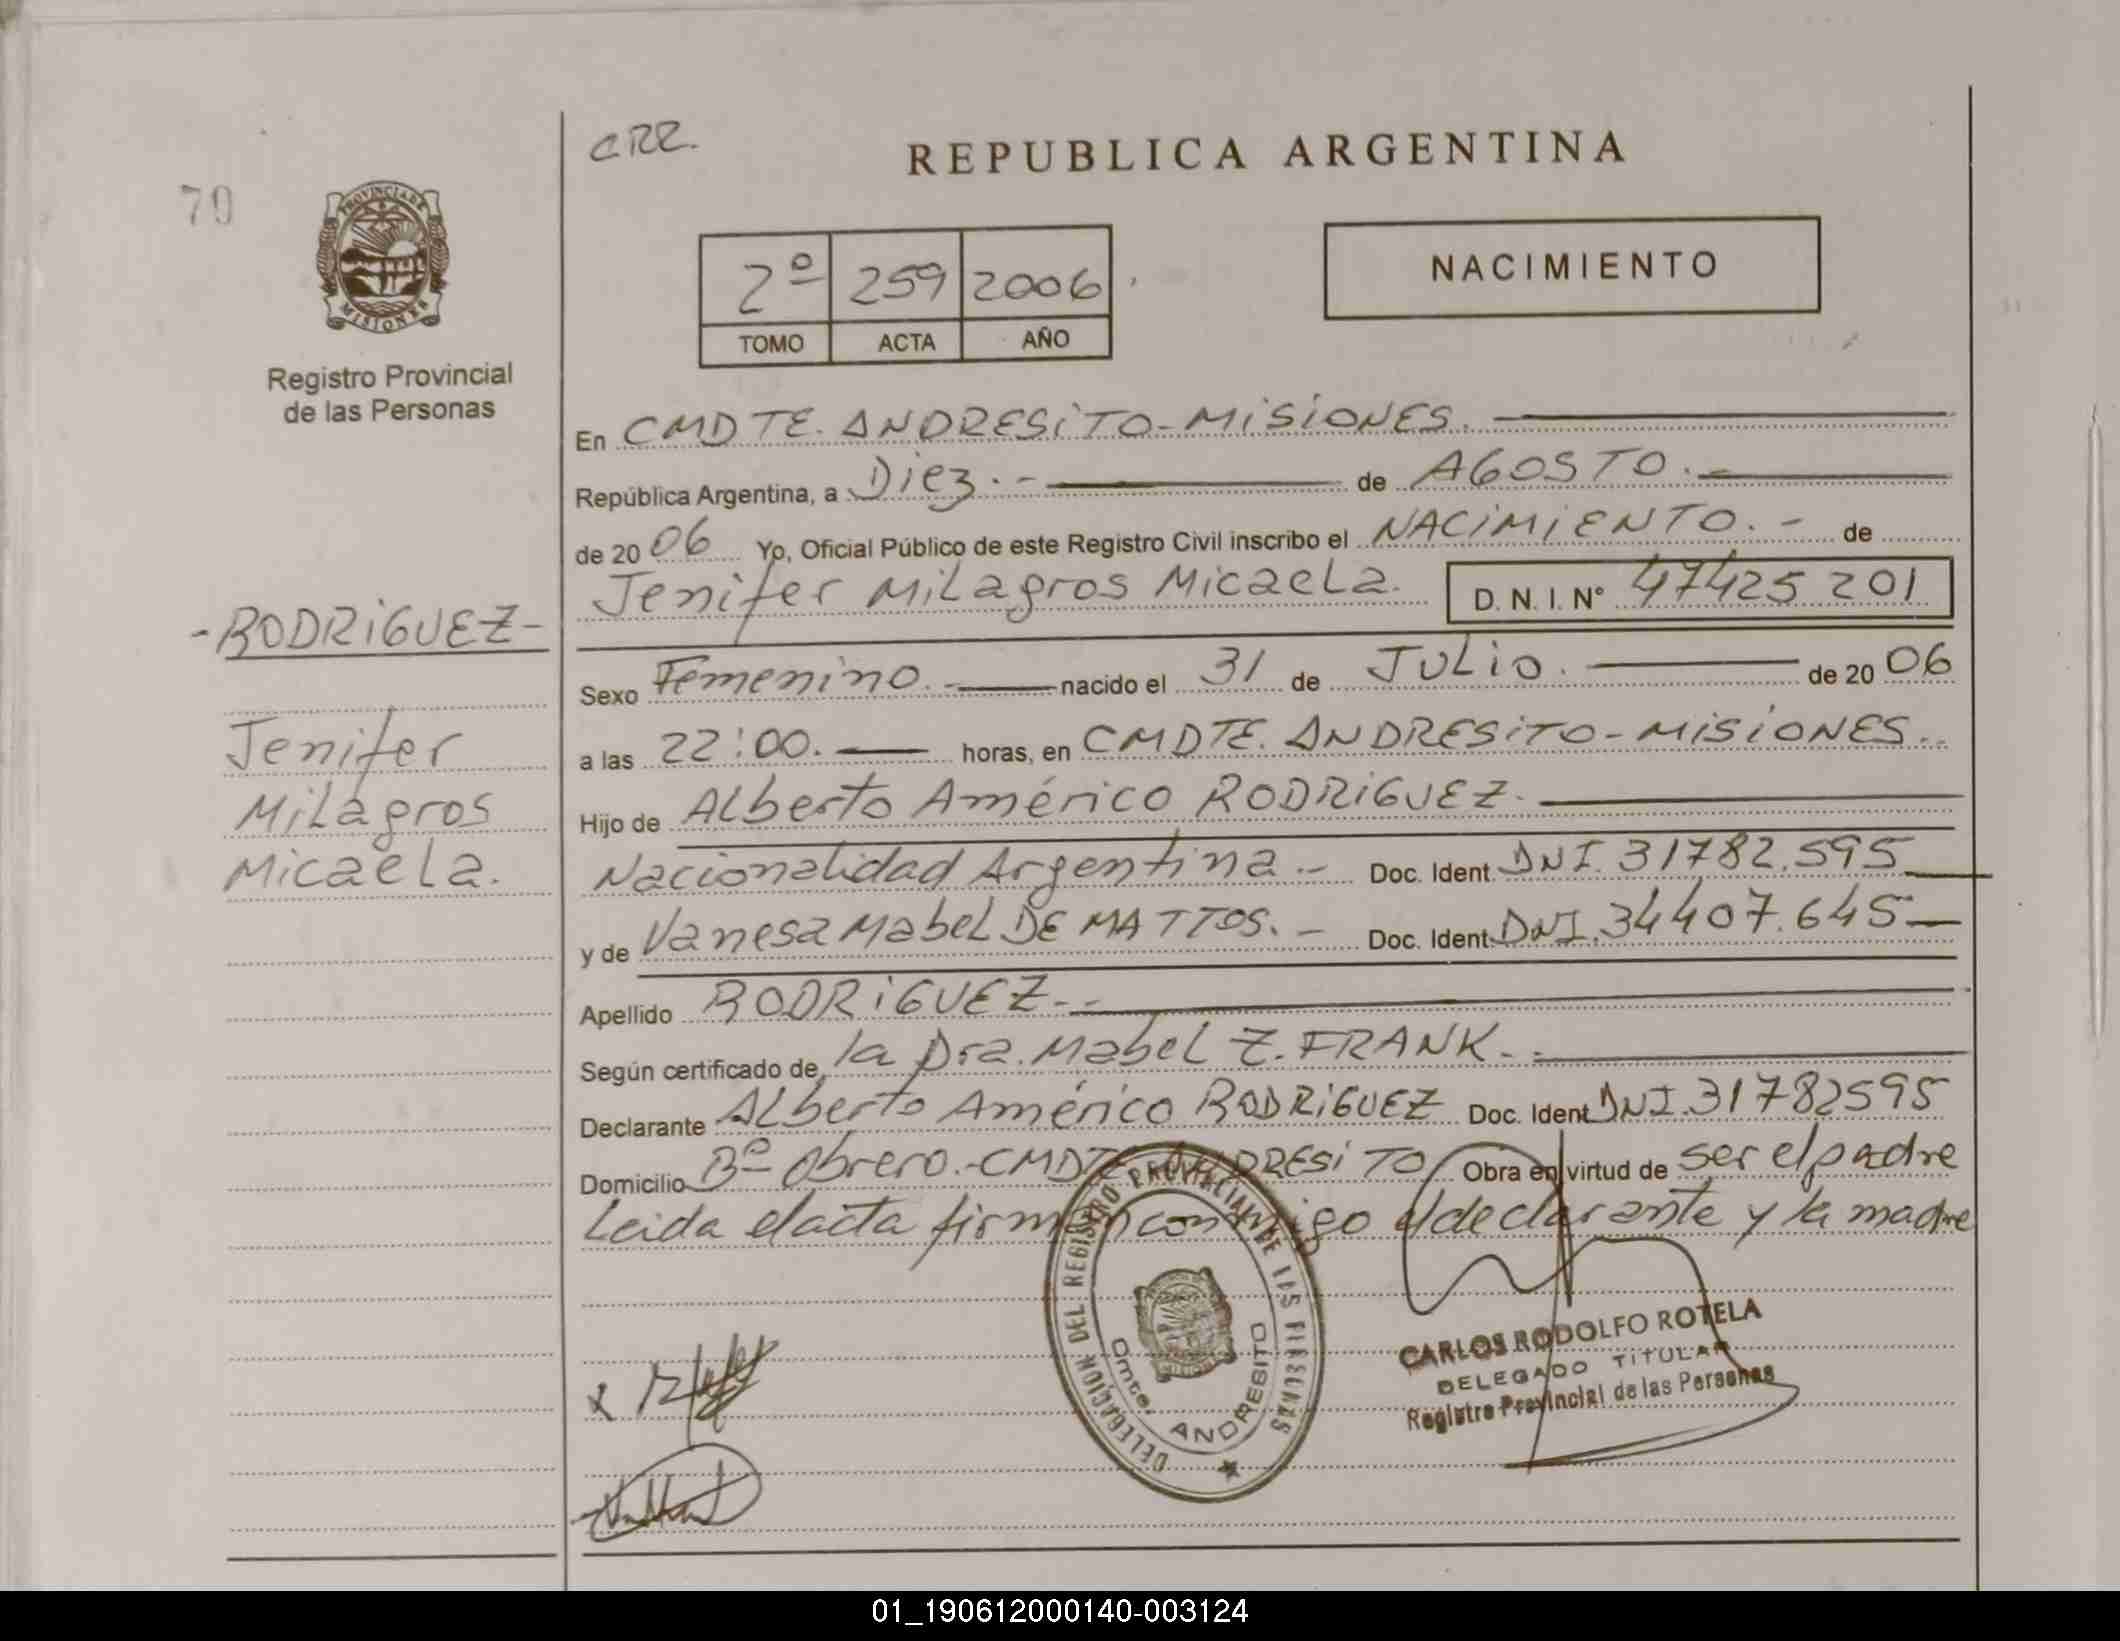 CRR.
REPUBLICA ARGENTINA
70
PROVINCIA DE
MISIONES
Registro Provincial
de las Personas
2º 259 2006
TOMO ACTA AÑO
NACIMIENTO
En CMDTE. ANDRESiTO-MiSiONES.
República Argentina, a Diez.- de AGOSTO.-
de 2006 Yo, Oficial Público de este Registro Civil inscribo el NACiMiENTO.- de
Jenifer Milagros Micaela. D. N. I. Nº 47425201
-RODRiGUEZ-
Jenifer
Milagros
Micaela.
Sexo Femenino.- nacido el 31 de JULio. de 2006
a las 22:00. horas, en CMDTE. ANDRESiTO-MiSiONES.
Hijo de Alberto Américo RODRiGUEZ.
Nacionalidad Argentina.- Doc. Ident. DNI.31782.595
y de Vanesa Mabel DE MATTOS.- Doc. Ident. DNI.34407.645
Apellido RODRiGUEZ.-
Según certificado de la Dra. Mabel Z. FRANK.-
Declarante Alberto Américo RODRiGUEZ Doc. Ident DNI.31782595
Domicilio Bº Obrero.-CMDTE ANDRESiTO Obra en virtud de ser el padre
Leida el acta firman conmigo el declarante y la madre
DELEGACION DEL REGISTRO PROVINCIAL DE LAS PERSONAS
Cmte. ANDRESITO
CARLOS RODOLFO ROTELA
DELEGADO TITULAR
Registro Provincial de las Personas
x
01_190612000140-003124